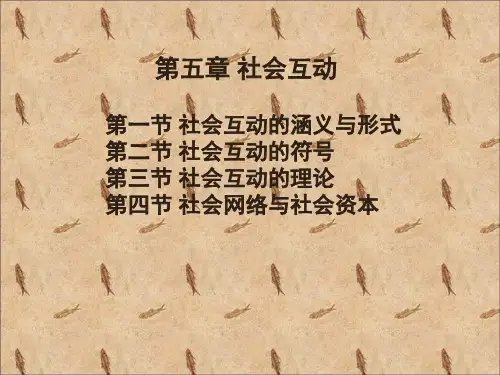 第五章 社会互动
第一节 社会互动的涵义与形式
第二节 社会互动的符号
第三节 社会互动的理论
第四节 社会网络与社会资本